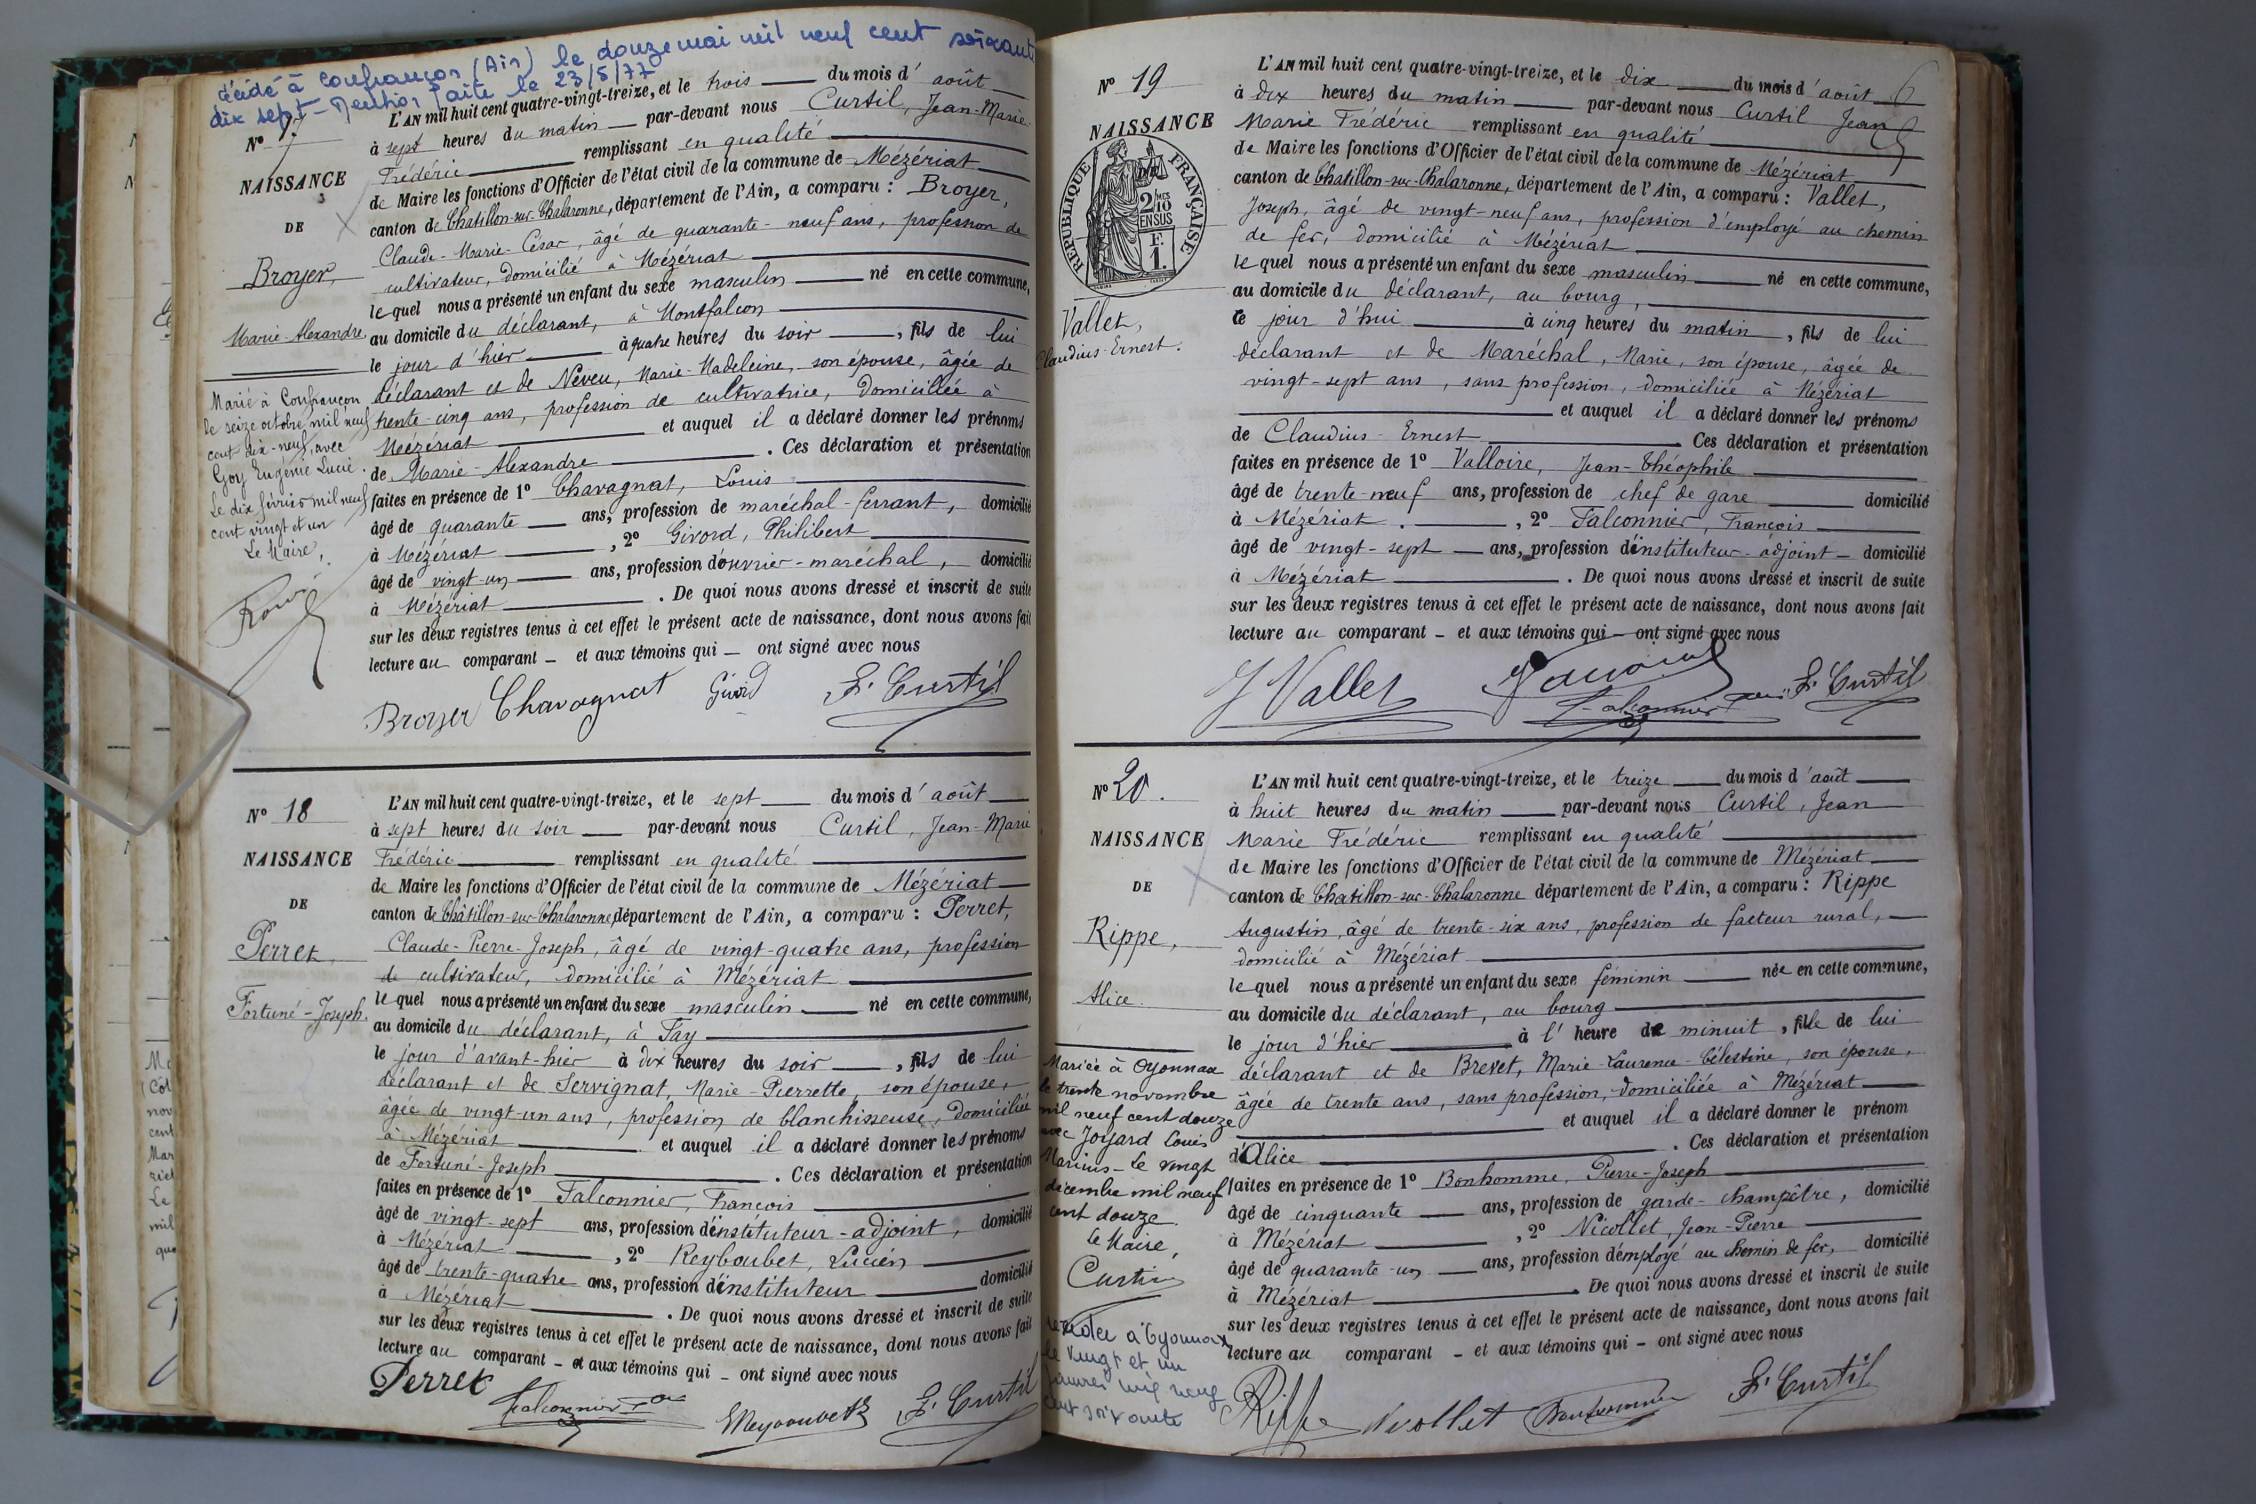 décédé à Confrançon (Ain) le douze mai mil neuf cent soixante
dix sept - Mention faite le 23/5/77
N° 17
NAISSANCE
DE
Broyer,
Marie-Alexandre
Marié à Confrançon
le seize octobre mil neuf
cent dix-neuf, avec
Goy Eugénie Lucie.
Le dix février mil neuf
cent vingt et un
Le Maire,
L'AN mil huit cent quatre-vingt-treize, et le trois du mois d'août
à sept heures du matin par-devant nous Curtil, Jean-Marie-
Frédéric remplissant en qualité
de Maire les fonctions d'Officier de l'état civil de la commune de Mézériat
canton de Chatillon-sur-Chalaronne, département de l'Ain, a comparu : Broyer,
Claude-Marie-César, âgé de quarante-neuf ans, profession de
cultivateur, domicilié à Mézériat
le quel nous a présenté un enfant du sexe masculin né en cette commune,
au domicile du déclarant, à Montfalcon
le jour d'hier à quatre heures du soir, fils de lui
déclarant et de Neveu, Marie-Madeleine, son épouse, âgée de
trente-cinq ans, profession de cultivatrice, domiciliée à
Mézériat et auquel il a déclaré donner les prénoms
de Marie-Alexandre. Ces déclaration et présentation
faites en présence de 1° Chavagnat, Louis
âgé de quarante ans, profession de maréchal-ferrant, domicilié
à Mézériat, 2° Givord, Philibert
âgé de vingt-un ans, profession d'ouvrier-maréchal, domicilié
à Mézériat. De quoi nous avons dressé et inscrit de suite
sur les deux registres tenus à cet effet le présent acte de naissance, dont nous avons fait
lecture au comparant - et aux témoins qui - ont signé avec nous
Broyer Chavagnat Givord F. Curtil
N° 18
NAISSANCE
DE
Perret,
Fortuné-Joseph.
L'AN mil huit cent quatre-vingt-treize, et le sept du mois d'août
à sept heures du soir par-devant nous Curtil, Jean-Marie
Frédéric remplissant en qualité
de Maire les fonctions d'Officier de l'état civil de la commune de Mézériat
canton de Châtillon-sur-Chalaronne, département de l'Ain, a comparu : Perret,
Claude-Pierre-Joseph, âgé de vingt-quatre ans, profession
de cultivateur, domicilié à Mézériat
le quel nous a présenté un enfant du sexe masculin né en cette commune,
au domicile du déclarant, à Fay
le jour d'avant-hier à dix heures du soir, fils de lui
déclarant et de Servignat, Marie-Pierrette, son épouse,
âgée de vingt-un ans, profession de blanchisseuse, domiciliée
à Mézériat et auquel il a déclaré donner les prénoms
de Fortuné-Joseph. Ces déclaration et présentation
faites en présence de 1° Falconnier, François
âgé de vingt-sept ans, profession d'instituteur-adjoint, domicilié
à Mézériat, 2° Reyboubet, Lucien
âgé de trente-quatre ans, profession d'instituteur domicilié
à Mézériat. De quoi nous avons dressé et inscrit de suite
sur les deux registres tenus à cet effet le présent acte de naissance, dont nous avons fait
lecture au comparant - et aux témoins qui - ont signé avec nous
Perret Falconnier F. Curtil
6
N° 19
NAISSANCE
RÉPUBLIQUE FRANÇAISE
2 MES 10 EN SUS
F. 1.
Vallet,
Claudius-Ernest.
L'AN mil huit cent quatre-vingt-treize, et le dix du mois d'août
à dix heures du matin par-devant nous Curtil Jean
Marie Frédéric remplissant en qualité
de Maire les fonctions d'Officier de l'état civil de la commune de Mézériat
canton de Chatillon-sur-Chalaronne, département de l'Ain, a comparu : Vallet,
Joseph, âgé de vingt-neuf ans, profession d'employé au chemin
de fer, domicilié à Mézériat
le quel nous a présenté un enfant du sexe masculin né en cette commune,
au domicile du déclarant, au bourg,
le jour d'hui à cinq heures du matin, fils de lui
déclarant et de Maréchal, Marie, son épouse, âgée de
vingt-sept ans, sans profession, domiciliée à Mézériat
et auquel il a déclaré donner les prénoms
de Claudius-Ernest. Ces déclaration et présentation
faites en présence de 1° Valloire, Jean-Théophile
âgé de trente-neuf ans, profession de chef de gare domicilié
à Mézériat, 2° Falconnier, François
âgé de vingt-sept ans, profession d'instituteur-adjoint - domicilié
à Mézériat. De quoi nous avons dressé et inscrit de suite
sur les deux registres tenus à cet effet le présent acte de naissance, dont nous avons fait
lecture au comparant - et aux témoins qui - ont signé avec nous
J Vallet Falconnier F. Curtil
N° 20.
NAISSANCE
DE
Rippe,
Alice.
Mariée à Oyonnax
le trente novembre
mil neuf cent douze
avec Joyard Louis
Marius - Le vingt
décembre mil neuf
cent douze.
Le Maire,
Curtil
Décédée à Oyonnax
le vingt et un
janvier mil neuf
cent soixante
L'AN mil huit cent quatre-vingt-treize, et le treize du mois d'août
à huit heures du matin par-devant nous Curtil, Jean
Marie Frédéric remplissant en qualité
de Maire les fonctions d'Officier de l'état civil de la commune de Mézériat
canton de Chatillon-sur-Chalaronne département de l'Ain, a comparu : Rippe
Augustin, âgé de trente-six ans, profession de facteur rural,
domicilié à Mézériat
le quel nous a présenté un enfant du sexe féminin née en cette commune,
au domicile du déclarant, au bourg
le jour d'hier à l'heure de minuit, fille de lui
déclarant et de Brevet, Marie-Laurence-Célestine, son épouse,
âgée de trente ans, sans profession, domiciliée à Mézériat
et auquel il a déclaré donner le prénom
d'Alice. Ces déclaration et présentation
faites en présence de 1° Bonhomme, Pierre-Joseph
âgé de cinquante ans, profession de garde-champêtre, domicilié
à Mézériat, 2° Nicollet, Jean-Pierre
âgé de quarante-un ans, profession d'employé au chemin de fer, domicilié
à Mézériat. De quoi nous avons dressé et inscrit de suite
sur les deux registres tenus à cet effet le présent acte de naissance, dont nous avons fait
lecture au comparant - et aux témoins qui - ont signé avec nous
Rippe Nicollet Bonhomme F. Curtil